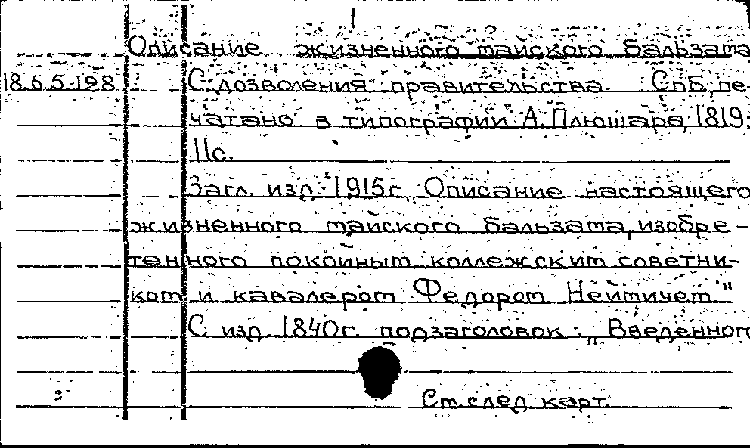 1
Описание жизненного майского бальзама
18.6.5.198 С дозволения правительства. Спб, пе-
чатано в типографии А. Плюшара, 1819.
11с.
Загл. изд. 1915г. Описание настоящего
жизненного майского бальзама, изобре-
тенного покойным коллежским советни-
ком и кавалером Федором Неймичем"
С изд. 1840г. подзаголовок: „Введенного
См.след. карт.